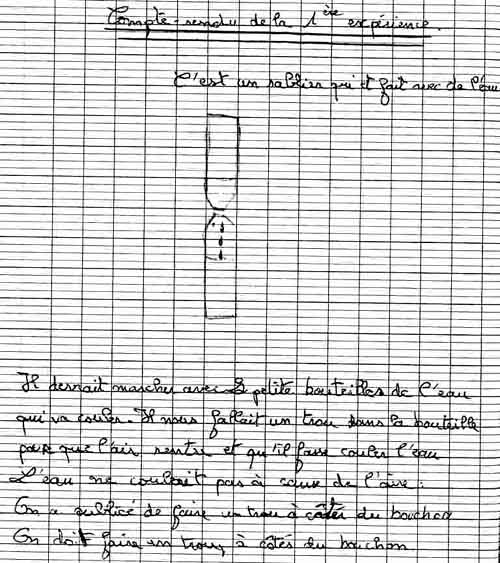 Compte-rendu de la 1ère expérience.
C'est un sablier qui et fait avec de l'eau
Il devrait marcher avec 2 petite bouteilles de l'eau
qui va couler. Il nous fallait un trou dans la bouteille
pour que l'air rentre et qu'il fasse couler l'eau
L'eau ne coulait pas à cause de l'aire.
On a oublié de faire un trou à côtés du bouchon
On doit faire un trou, à côtés du bouchon